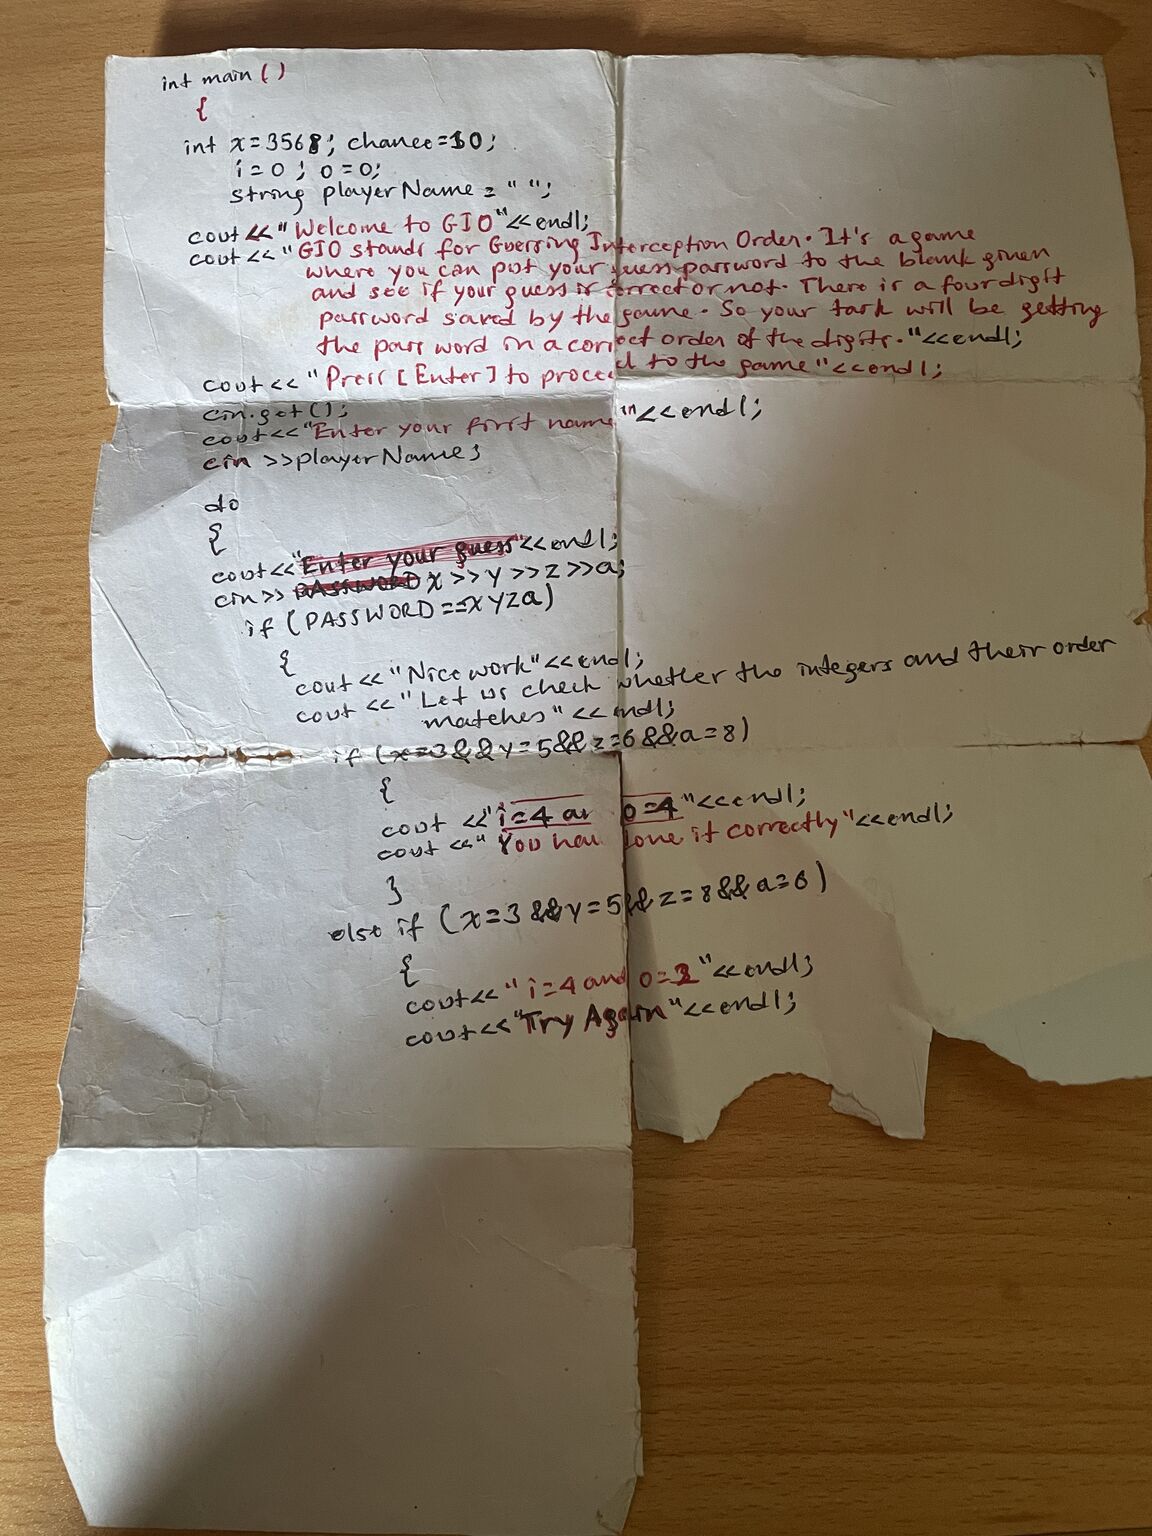 int main ()
{
int x=3568; chance=10;
i=0; o=0;
string playerName = " ";
cout << "Welcome to GIO"<<endl;
cout << "GIO stands for Guessing Interception Order. It's a game
where you can put your guess password to the blank given
and see if your guess is correct or not. There is a four digit
password saved by the game. So your task will be getting
the pass word in a correct order of the digits."<<endl;
cout << "Press [Enter] to proceed to the game"<<endl;
cin.get();
cout<<"Enter your first name"<<endl;
cin >>playerName;
do
{
cout<<"Enter your guess"<<endl;
cin>> PASSWORD x >>y >>z >>a;
if (PASSWORD==xyza)
{
cout << "Nice work"<<endl;
cout << "Let us check whether the integers and their order
matches" << endl;
if (x=3&&y=5&&z=6&&a=8)
{
cout <<"i=4 an o=4"<<endl;
cout <<" You hav done it correctly"<<endl;
}
else if (x=3&&y=5&&z=8&&a=6)
{
cout<<" i=4 and o=2"<<endl;
cout<<"Try Again"<<endl;